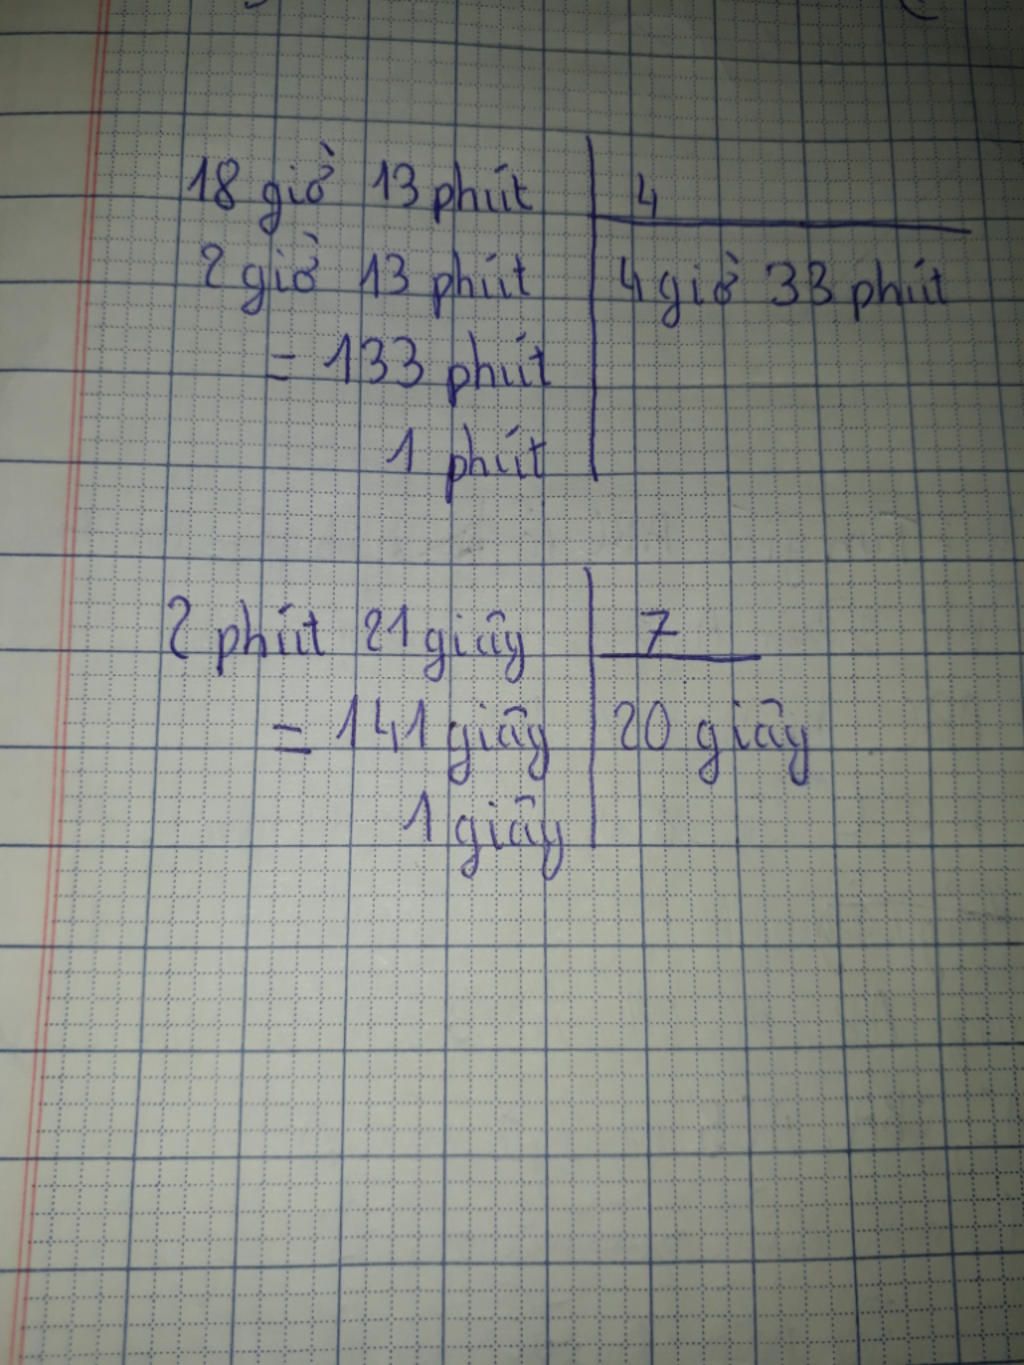 18 giờ 13 phút 4
2 giờ 13 phút 4 giờ 33 phút
= 133 phút
1 phút
2 phút 21 giây 7
= 141 giây 20 giây
1 giây